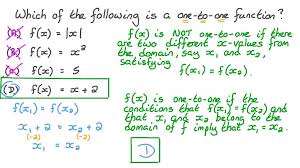 Which of the following is a one-to-one function?
(A) f(x) = |x|
(B) f(x) = x²
(C) f(x) = 5
(D) f(x) = x + 2
f(x₁) = f(x₂)
x₁ + 2 = x₂ + 2
(-2) (-2)
x₁ = x₂
f(x) is NOT one-to-one if there
are two different x-values from
the domain, say x₁ and x₂,
satisfying
f(x₁) = f(x₂).
f(x) is one-to-one if the
conditions that f(x₁) = f(x₂) and
that x₁ and x₂ belong to the
domain of f imply that x₁ = x₂.
D